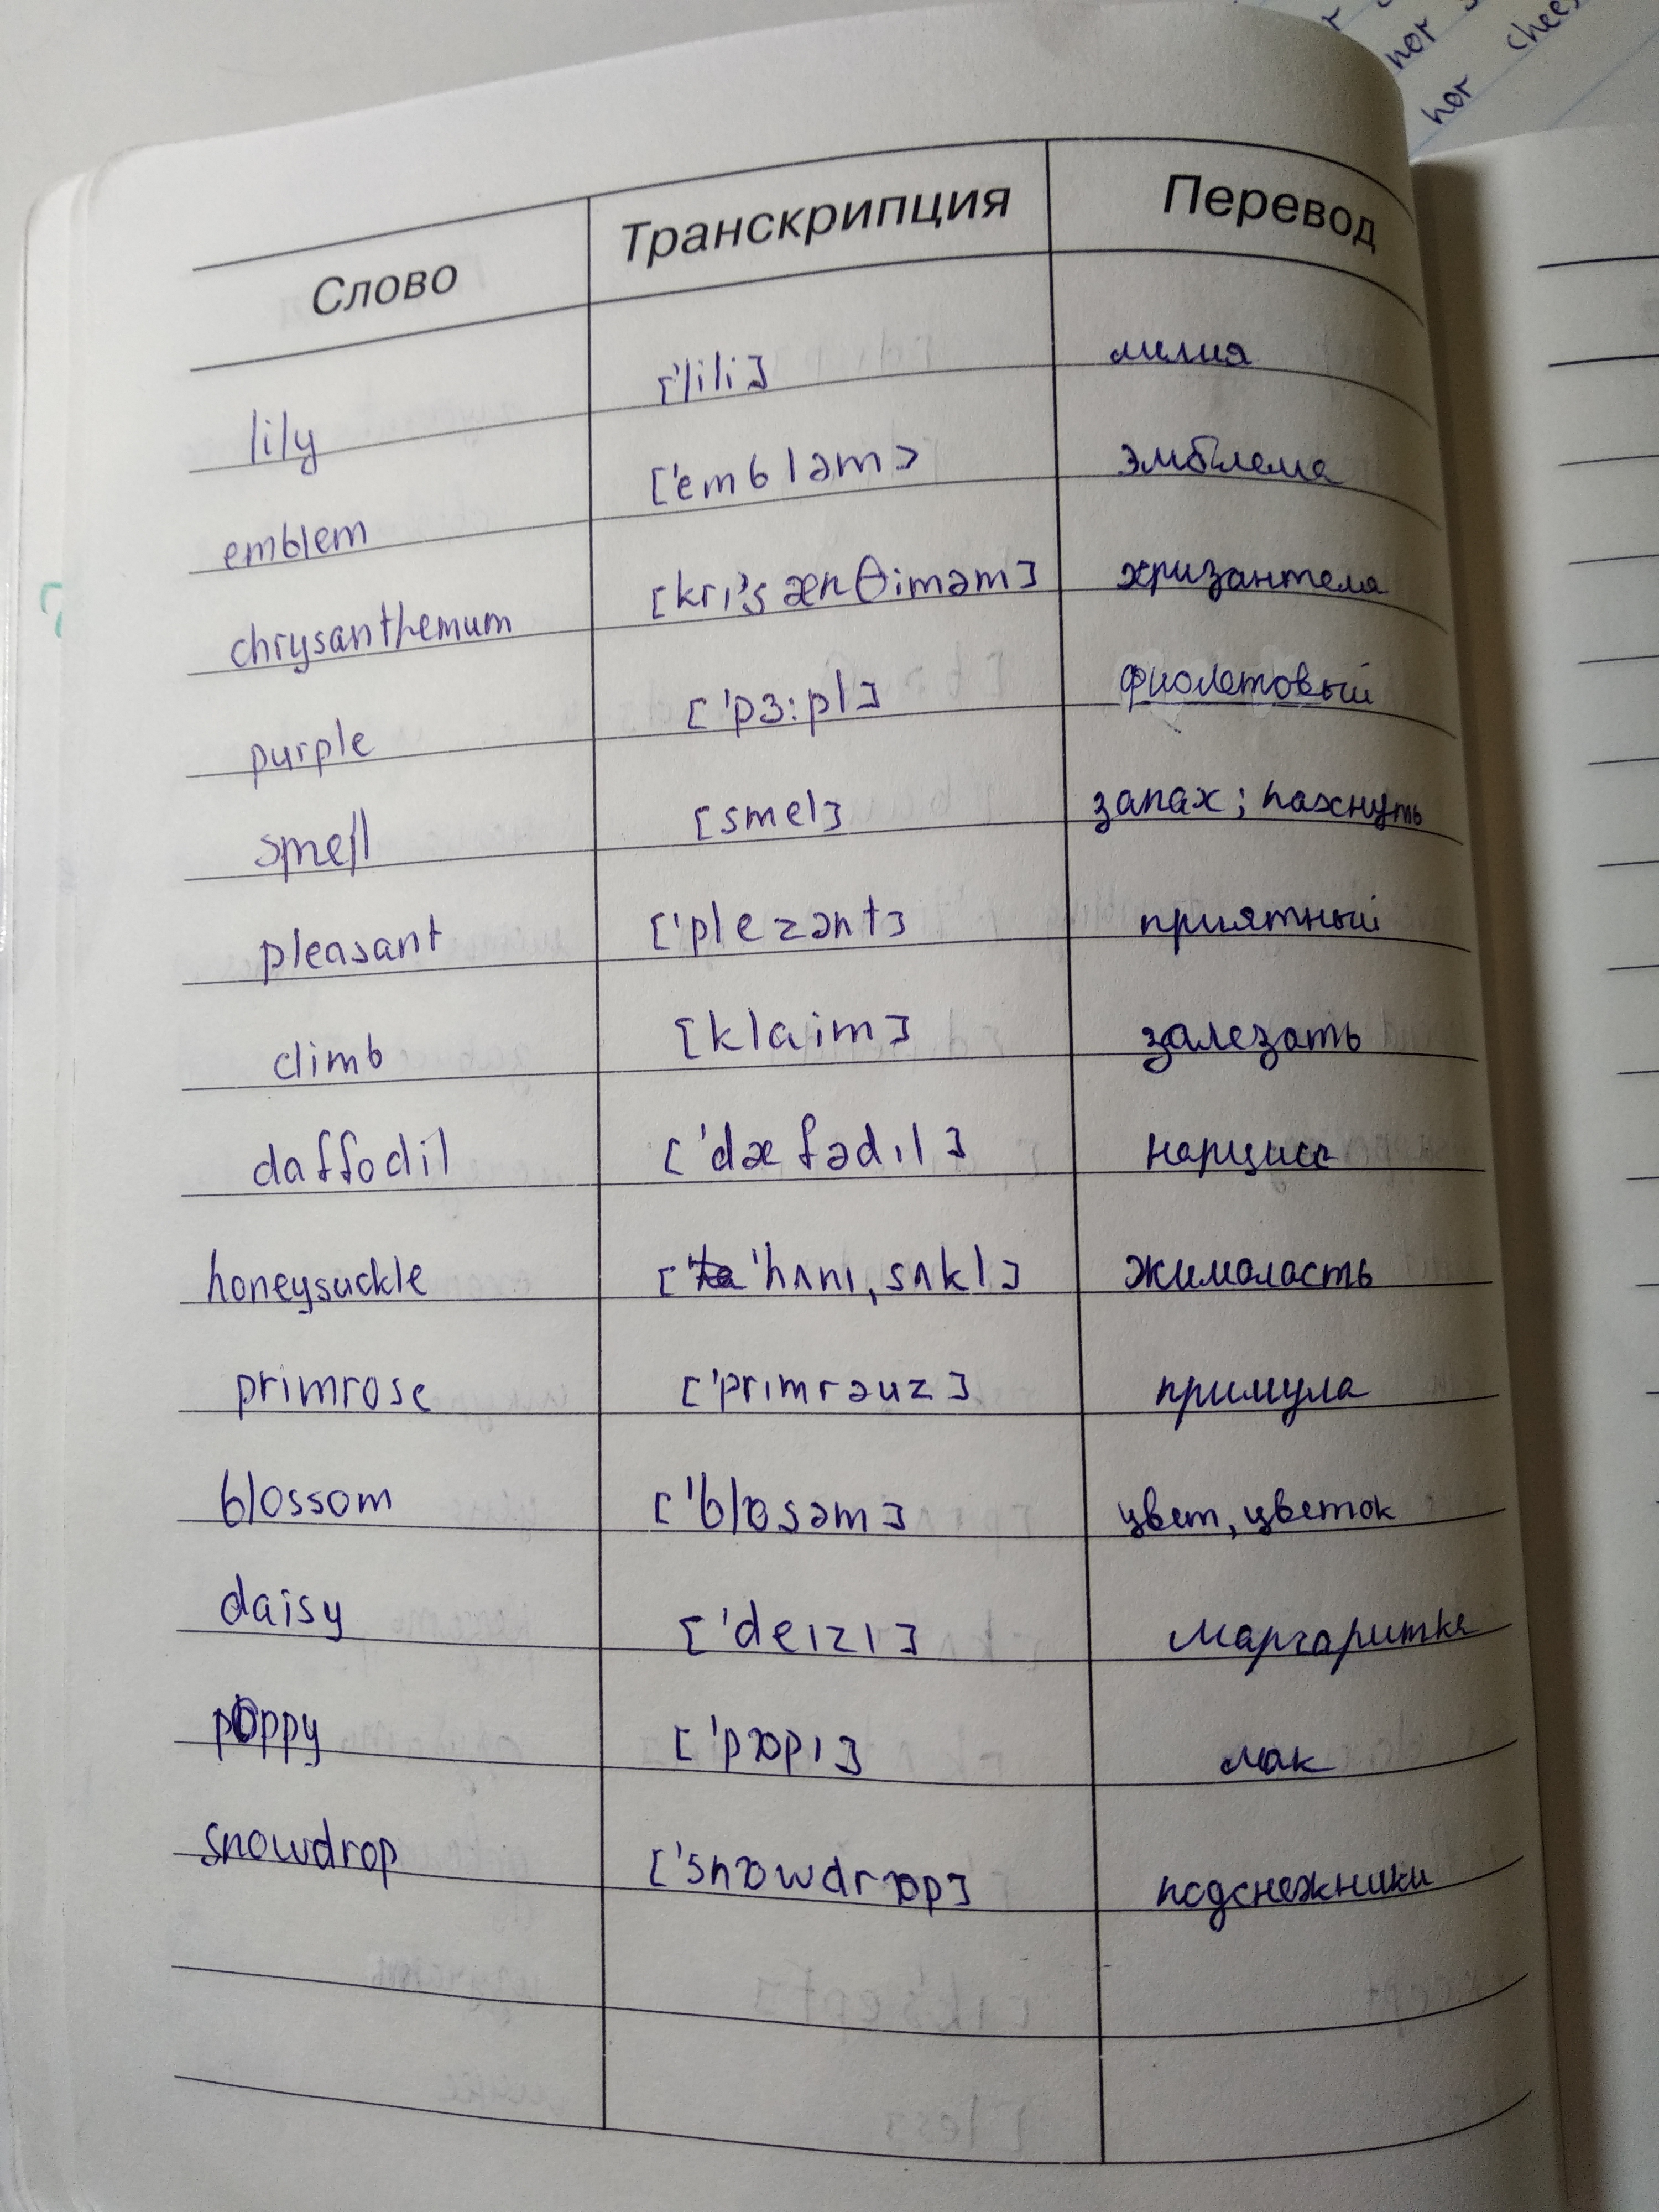 nor
nor chee
Слово Транскрипция Перевод
lily ['lili] лилия
emblem ['embləm] эмблема
chrysanthemum [krı'sænθiməm] хризантема
purple ['pɜ:pl] фиолетовый
smell [smel] запах; пахнуть
pleasant ['plezənt] приятный
climb [klaim] залезать
daffodil ['dæfədıl] нарцисс
honeysuckle ['hʌnı,sʌkl] жимолость
primrose ['prımrəuz] примула
blossom ['blɒsəm] цвет, цветок
daisy ['deızı] маргаритка
poppy ['pɒpı] мак
snowdrop ['snɒwdrɒp] подснежники